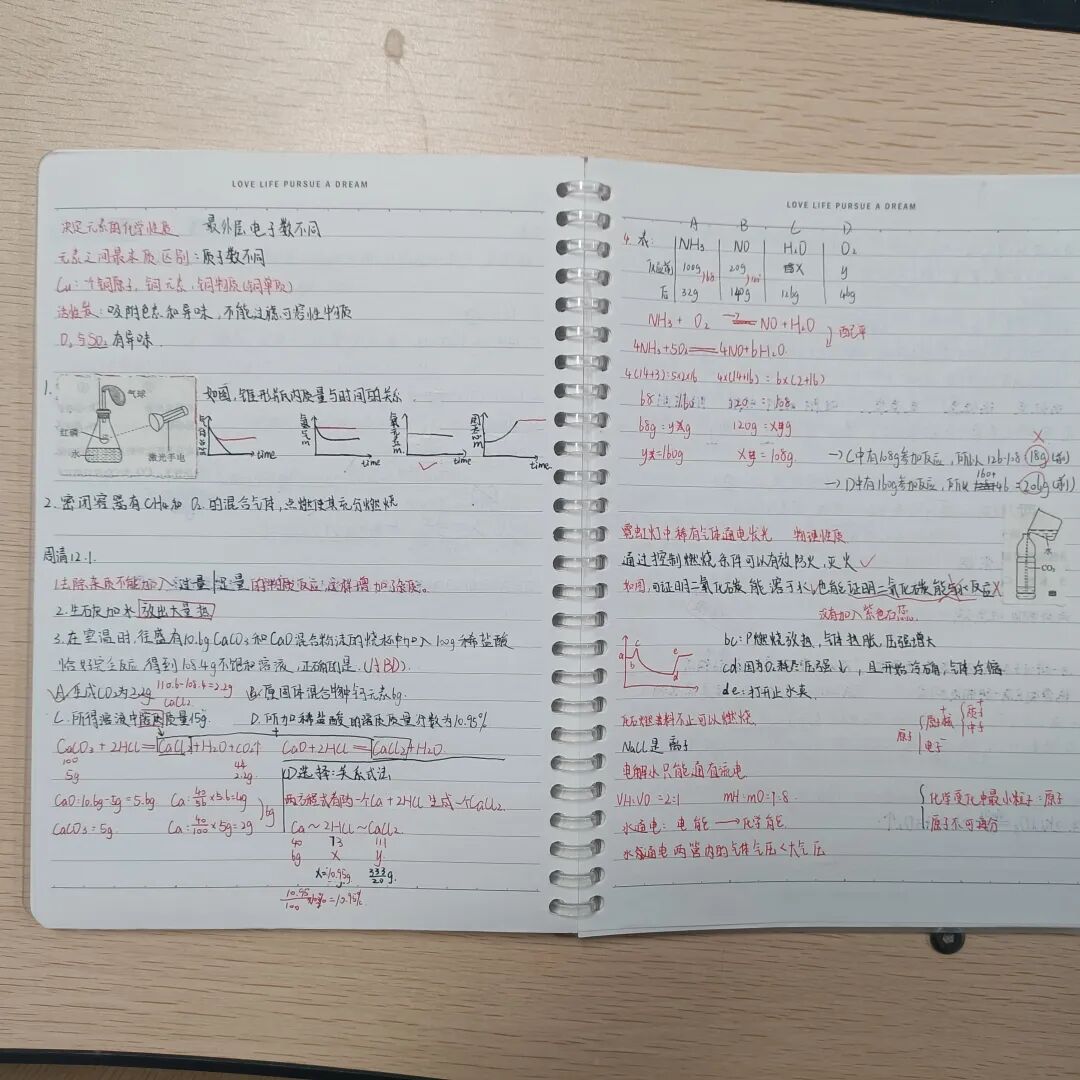 LOVE LIFE PURSUE A DREAM
决定元素的化学性质 最外层电子数不同
元素之间最本质区别：质子数不同
Cu：一个铜原子，铜元素，铜物质(铜单质)
活性炭：吸附色素和异味，不能过滤可溶性杂质
有异味
1.
气球
红磷
水
激光手电
如图，锥形瓶内质量与时间的关系
time
time
time
time
2. 密闭容器有CH4和O2的混合气体，点燃使其充分燃烧
周清12.1.
1.去除杂质不能加入过量/足量的物质反应，这样增加杂质。
2.生石灰加水放出大量热
3.在室温时，往盛有10.6g CaCO3和CaO混合物法的烧杯中加入100g稀盐酸
恰好完全反应，得到108.4g不饱和溶液，正确的是(ABD)
A.生成CO2为2.2g 110.6-108.4=2.2g B.原固体混合物种钙元素6g.
CaCl2
C.所得溶液中溶质质量15g. D.所加稀盐酸的溶质质量分数为10.95%
CaCO3+2HCl=CaCl2+H2O+CO2↑ CaO+2HCl=CaCl2+H2O
100 44
5g 2.2g
①选择：关系式法
CaO=10.6g-5g=5.6g Ca：40/56×5.6=4g
CaCO3=5g Ca：40/100×5g=2g
6g
两方程式有的一个Ca+2HCl生成一个CaCl2.
Ca~2HCl~CaCl2
40 73 111
6g x y
x=10.95g 333/20g.
10.95/100×100%=10.95%
LOVE LIFE PURSUE A DREAM
A B C D
4. 表： NH3 NO H2O O2
反应前 100g 20g X y
后 32g 140g 126g 46g
NH3+O2 → NO+H2O
配平
4NH3+5O2=4NO+6H2O
4(14+3)：5×2×16 4×(14+16)：6×(2+16)
120：108
68g=yg 120g=xg
y=160g x=108g
→C中有108g参加反应，所以126-108=18g(前)
→D中有160g参加反应，所以160+46=206g(前)
霓虹灯中稀有气体通电发光 物理性质
通过控制燃烧条件可以有效防火，灭火✓
如图，可证明二氧化碳能溶于水，也能证明二氧化碳能与水反应X
没有加入紫色石蕊
水
CO2
a b c d e
bc：P燃烧放热，气体热胀，压强增大
cd：因为O2耗尽压强↓，且开始冷确，气体冷缩
de：打开止水夹
化石燃料不止可以燃烧
原子 原子核 质子 中子
电子
NaCl是离子
电解水只能通直流电
VH：VO=2：1 mH：mO=1：8
化学变化中最小粒子：原子
原子不可再分
水通电：电能→化学能
水通电两管内的气体气压<大气压